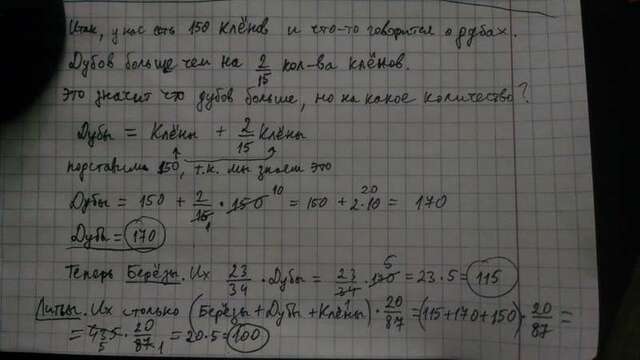 Итак, у нас есть 150 клёнов и что-то говорится о дубах.
Дубов больше чем на 2/15 кол-ва клёнов.
Это значит что дубов больше, но на какое количество?
Дубы = Клёны + 2/15 Клёны
подставим 150, т.к. мы знаем это
Дубы = 150 + 2/15 1 · 150 10 = 150 + 2·10 20 = 170
Дубы = 170
Теперь Берёзы. Их 23/34 · Дубы = 23/34 · 170 5 = 23 · 5 = 115
Липы. Их столько (Берёзы + Дубы + Клёны) · 20/87 = (115 + 170 + 150) · 20/87 =
= 435 5 · 20/87 1 = 20 · 5 = 100